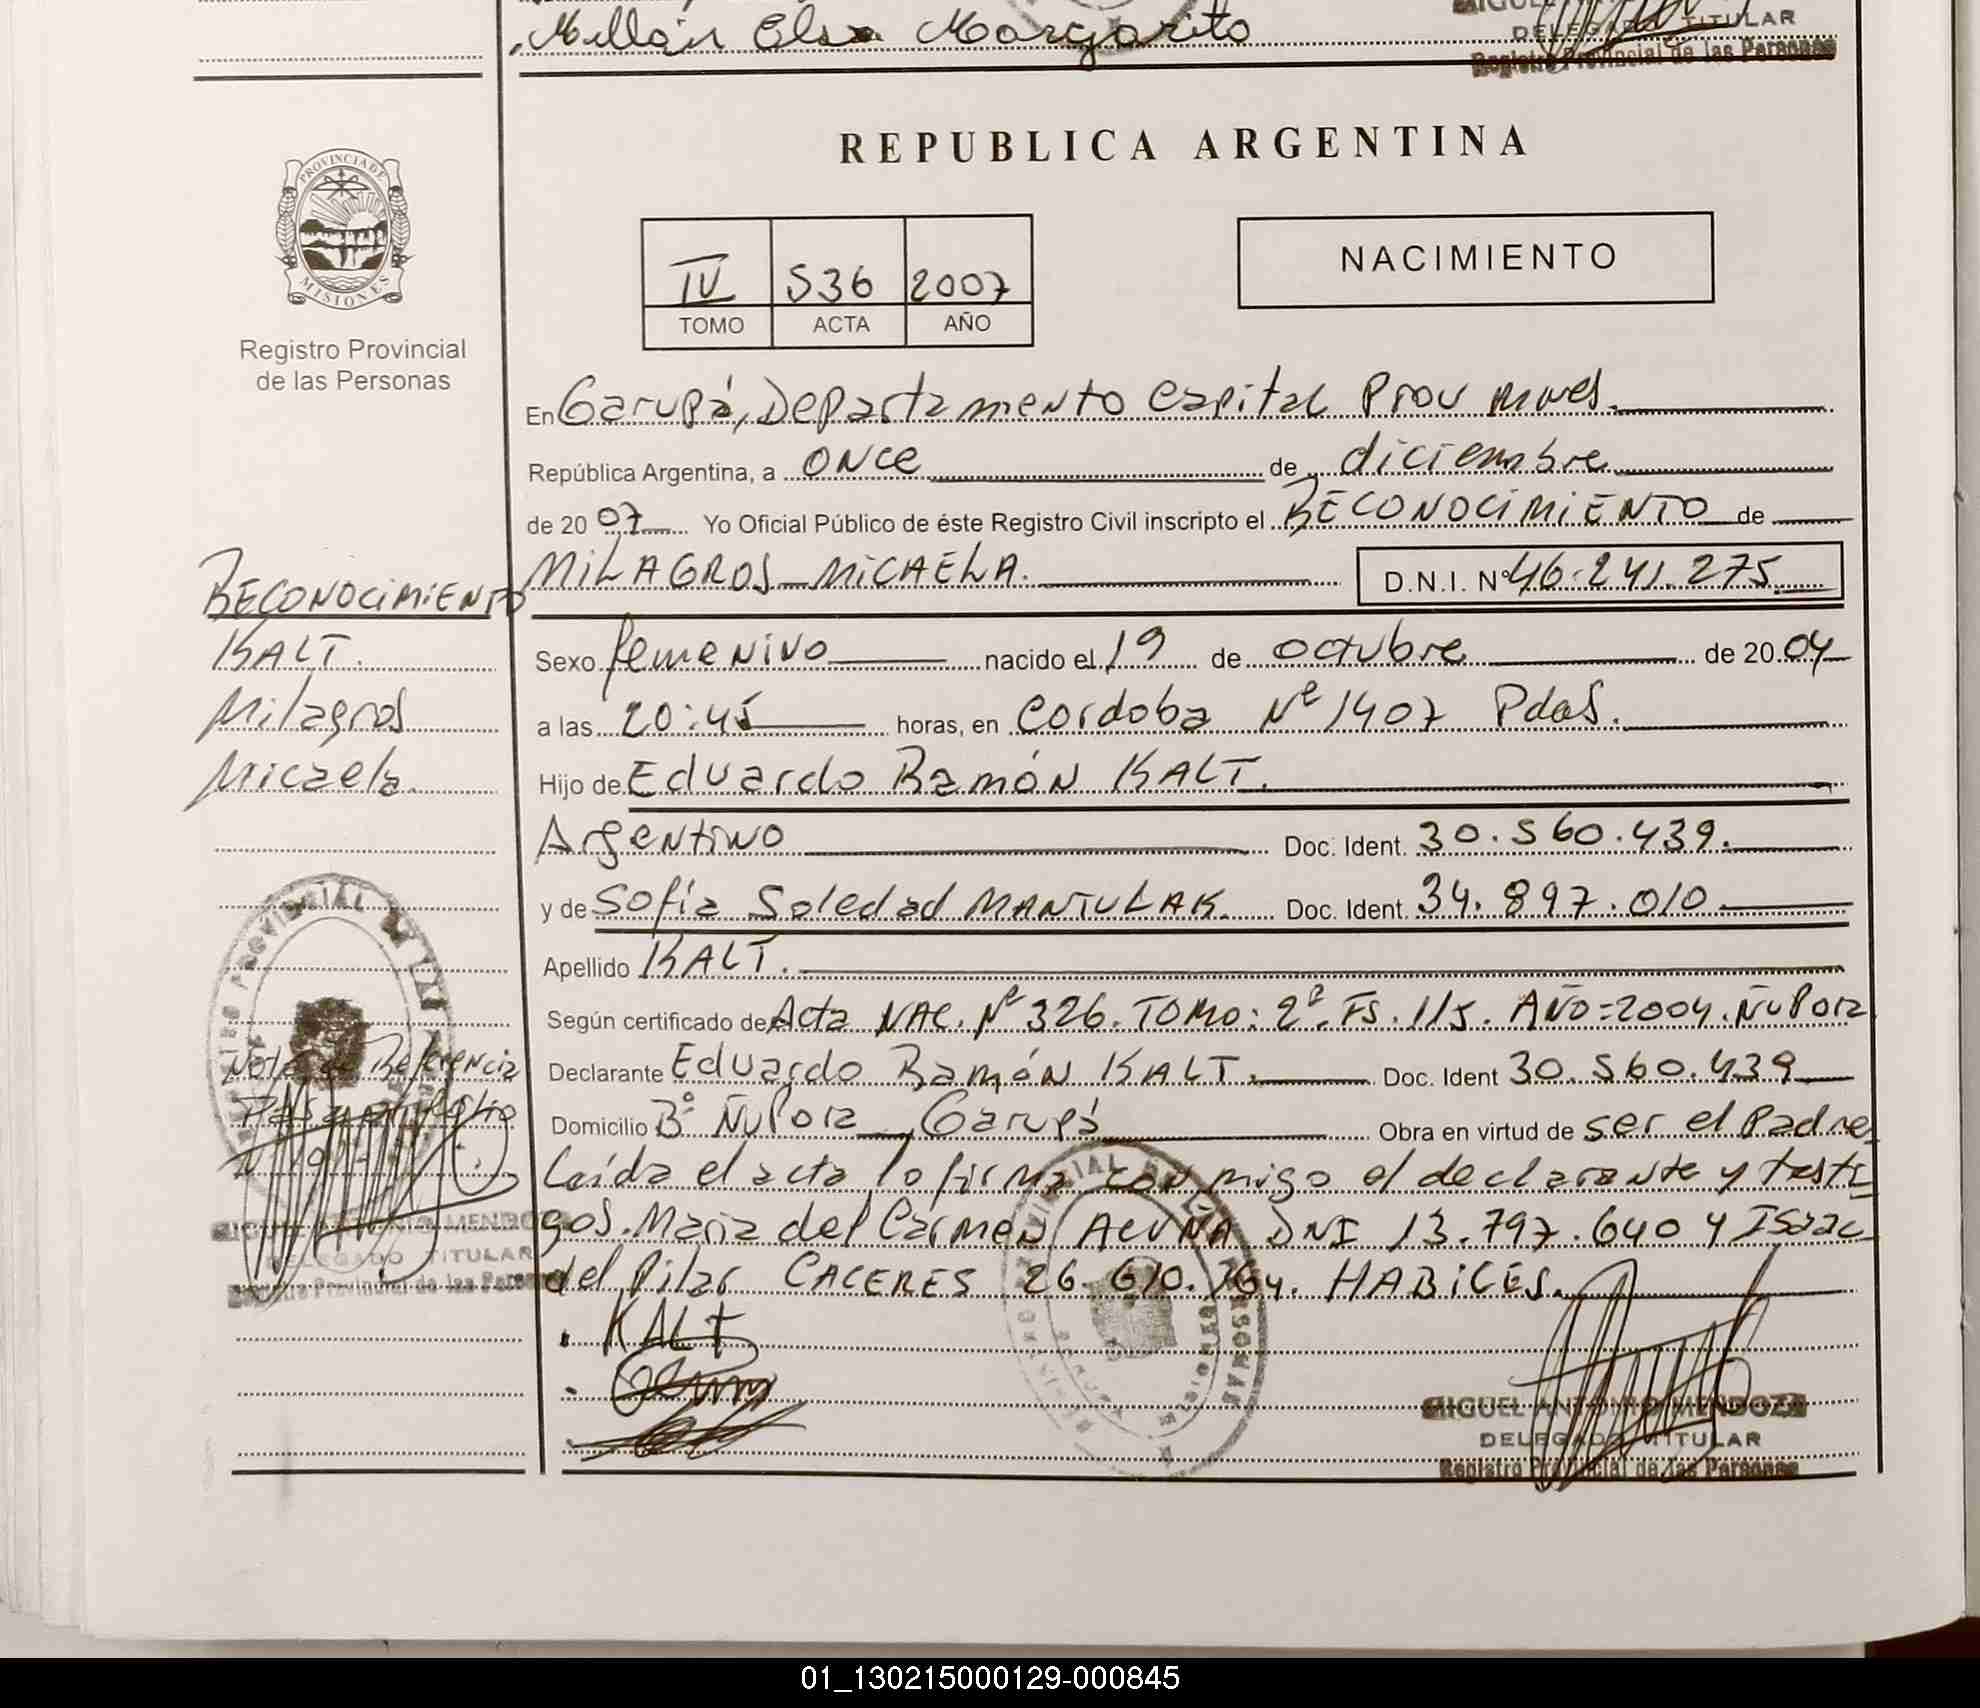 Millán Elsa Margarita
DELEGADO TITULAR
Registro Provincial de las Personas
REPUBLICA ARGENTINA
PROVINCIA DE
MISIONES
Registro Provincial
de las Personas
IV 536 2007
TOMO ACTA AÑO
NACIMIENTO
En Garupá, Departamento Capital Prov Mnes.
República Argentina, a once de diciembre
de 2007 Yo Oficial Público de éste Registro Civil inscripto el RECONOCIMIENTO de
MILAGROS MICAELA. D.N.I. Nº 46.241.275
RECONOCIMIENTO
KALT.
Milagros
Micaela.
Sexo femenino nacido el 19 de octubre de 2004
a las 20:45 horas, en Cordoba Nº 1407 Pdas.
Hijo de Eduardo Ramón KALT.
Argentino Doc. Ident. 30.560.439.
y de Sofía Soledad MANTULAK. Doc. Ident. 34.897.010
Apellido KALT.
Según certificado de Acta NAC. Nº 326. TOMO: 2º. FS. 115. AÑO=2004. Ñu Pora
Declarante Eduardo Ramón KALT. Doc. Ident 30.560.439
Domicilio Bº Ñu Pora Garupá Obra en virtud de ser el Padre
Leída el acta lo firma conmigo el declarante y testi-
gos. Maria del Carmen ACUÑA DNI 13.797.640 y Isaac
del Pilar CACERES 26.610.164. HABILES.
Nota de Referencia
KALT
MIGUEL ANTONIO MENDOZA
DELEGADO TITULAR
Registro Provincial de las Personas
MIGUEL ANTONIO MENDOZA
DELEGADO TITULAR
Registro Provincial de las Personas
01_130215000129-000845